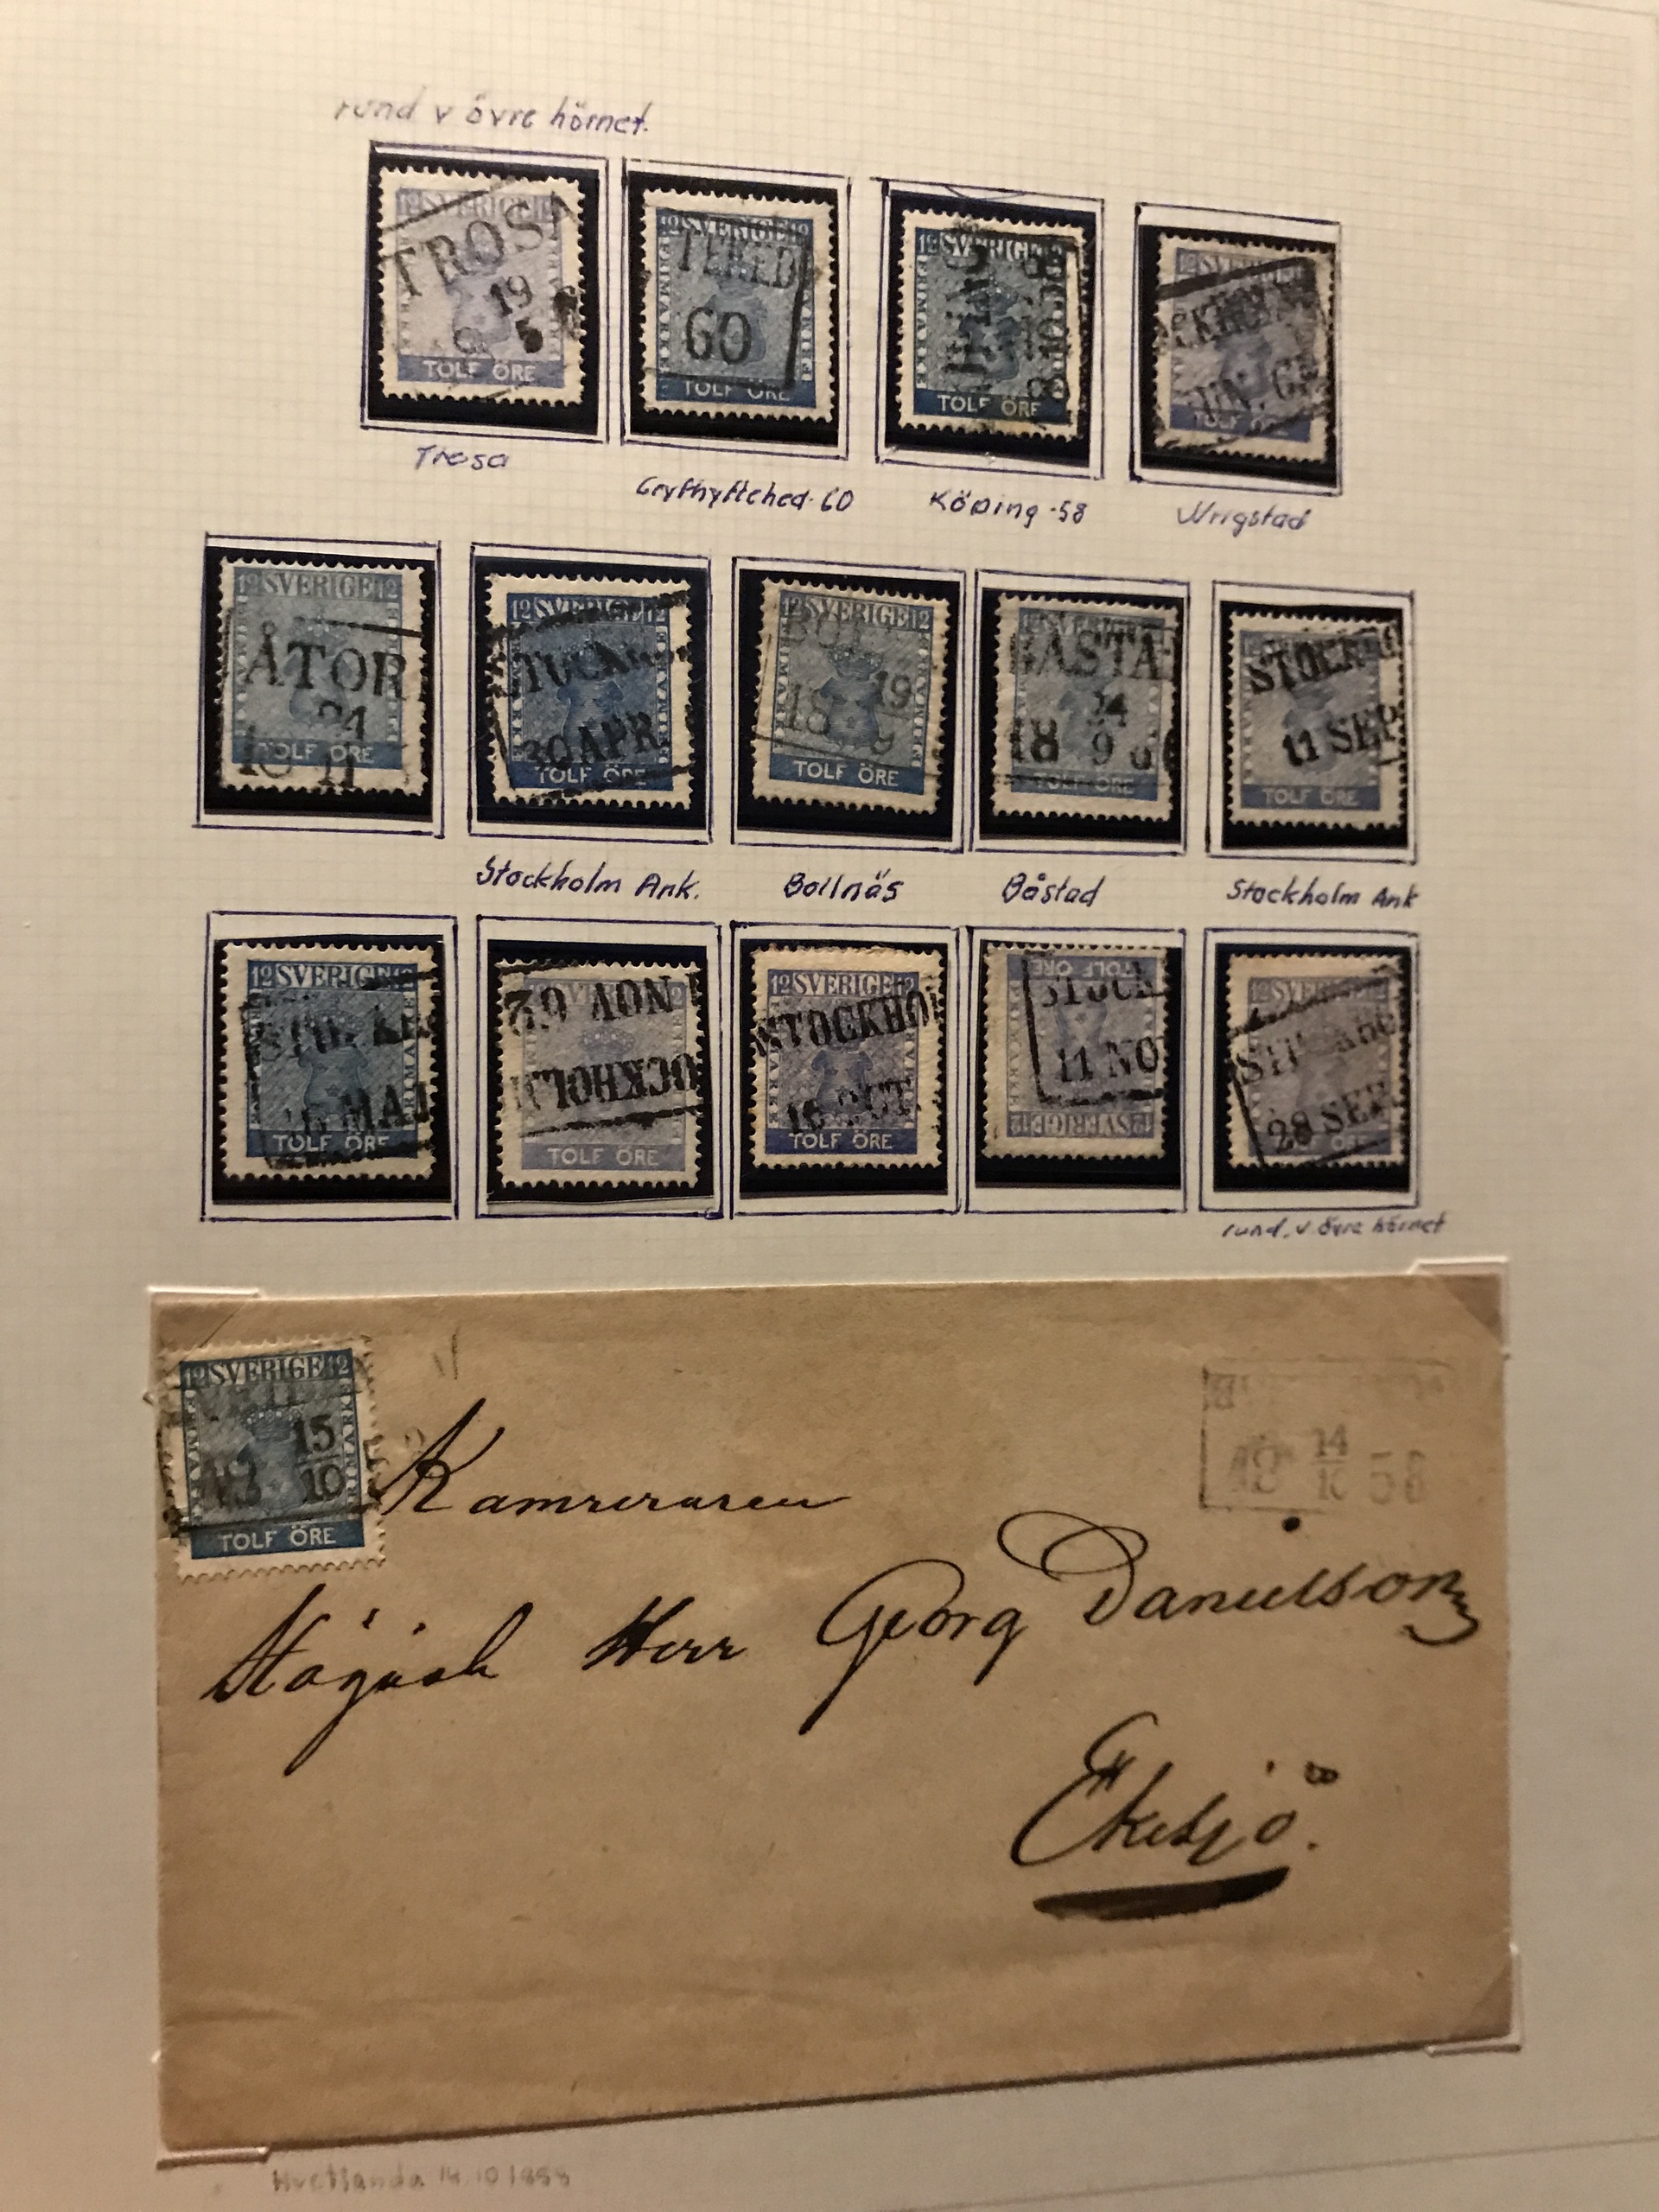 rund v övre hörnet.
12 SVERIGE 12
TROSA
19
5
TOLF ÖRE
12 SVERIGE 12
TEHED
60
TOLF ÖRE
12 SVERIGE 12
TOLF ÖRE
SVERIGE
TOLF ÖRE
Trosa
Grythyttehed-60
Köping -58
Wrigstad
12 SVERIGE 12
ÅTOR
24
18 11
TOLF ÖRE
12 SVERIGE 12
STOCK
30 APR
TOLF ÖRE
12 SVERIGE 12
BOL
19
18 9
TOLF ÖRE
BÅSTA
14
18 9 6
TOLF ÖRE
STOCKHO
11 SEP
TOLF ÖRE
Stockholm Ank.
Bollnäs
Båstad
Stockholm Ank
12 SVERIGE 12
MAJ
TOLF ÖRE
NOV 62
OCKHOLM
TOLF ÖRE
12 SVERIGE 12
STOCKHOL
16 OCT.
TOLF ÖRE
TOLF ÖRE
STOCK
11 NO
12 SVERIGE 12
12 SVERIGE
28 SEP
rund. v. övre hörnet
12 SVERIGE 12
FRIMÄRKE
15
10
TOLF ÖRE
14
10 58
Kamreraren
Högäd. Herr Georg Danielson
Ekesjö.
Hvetlanda 14.10 1858